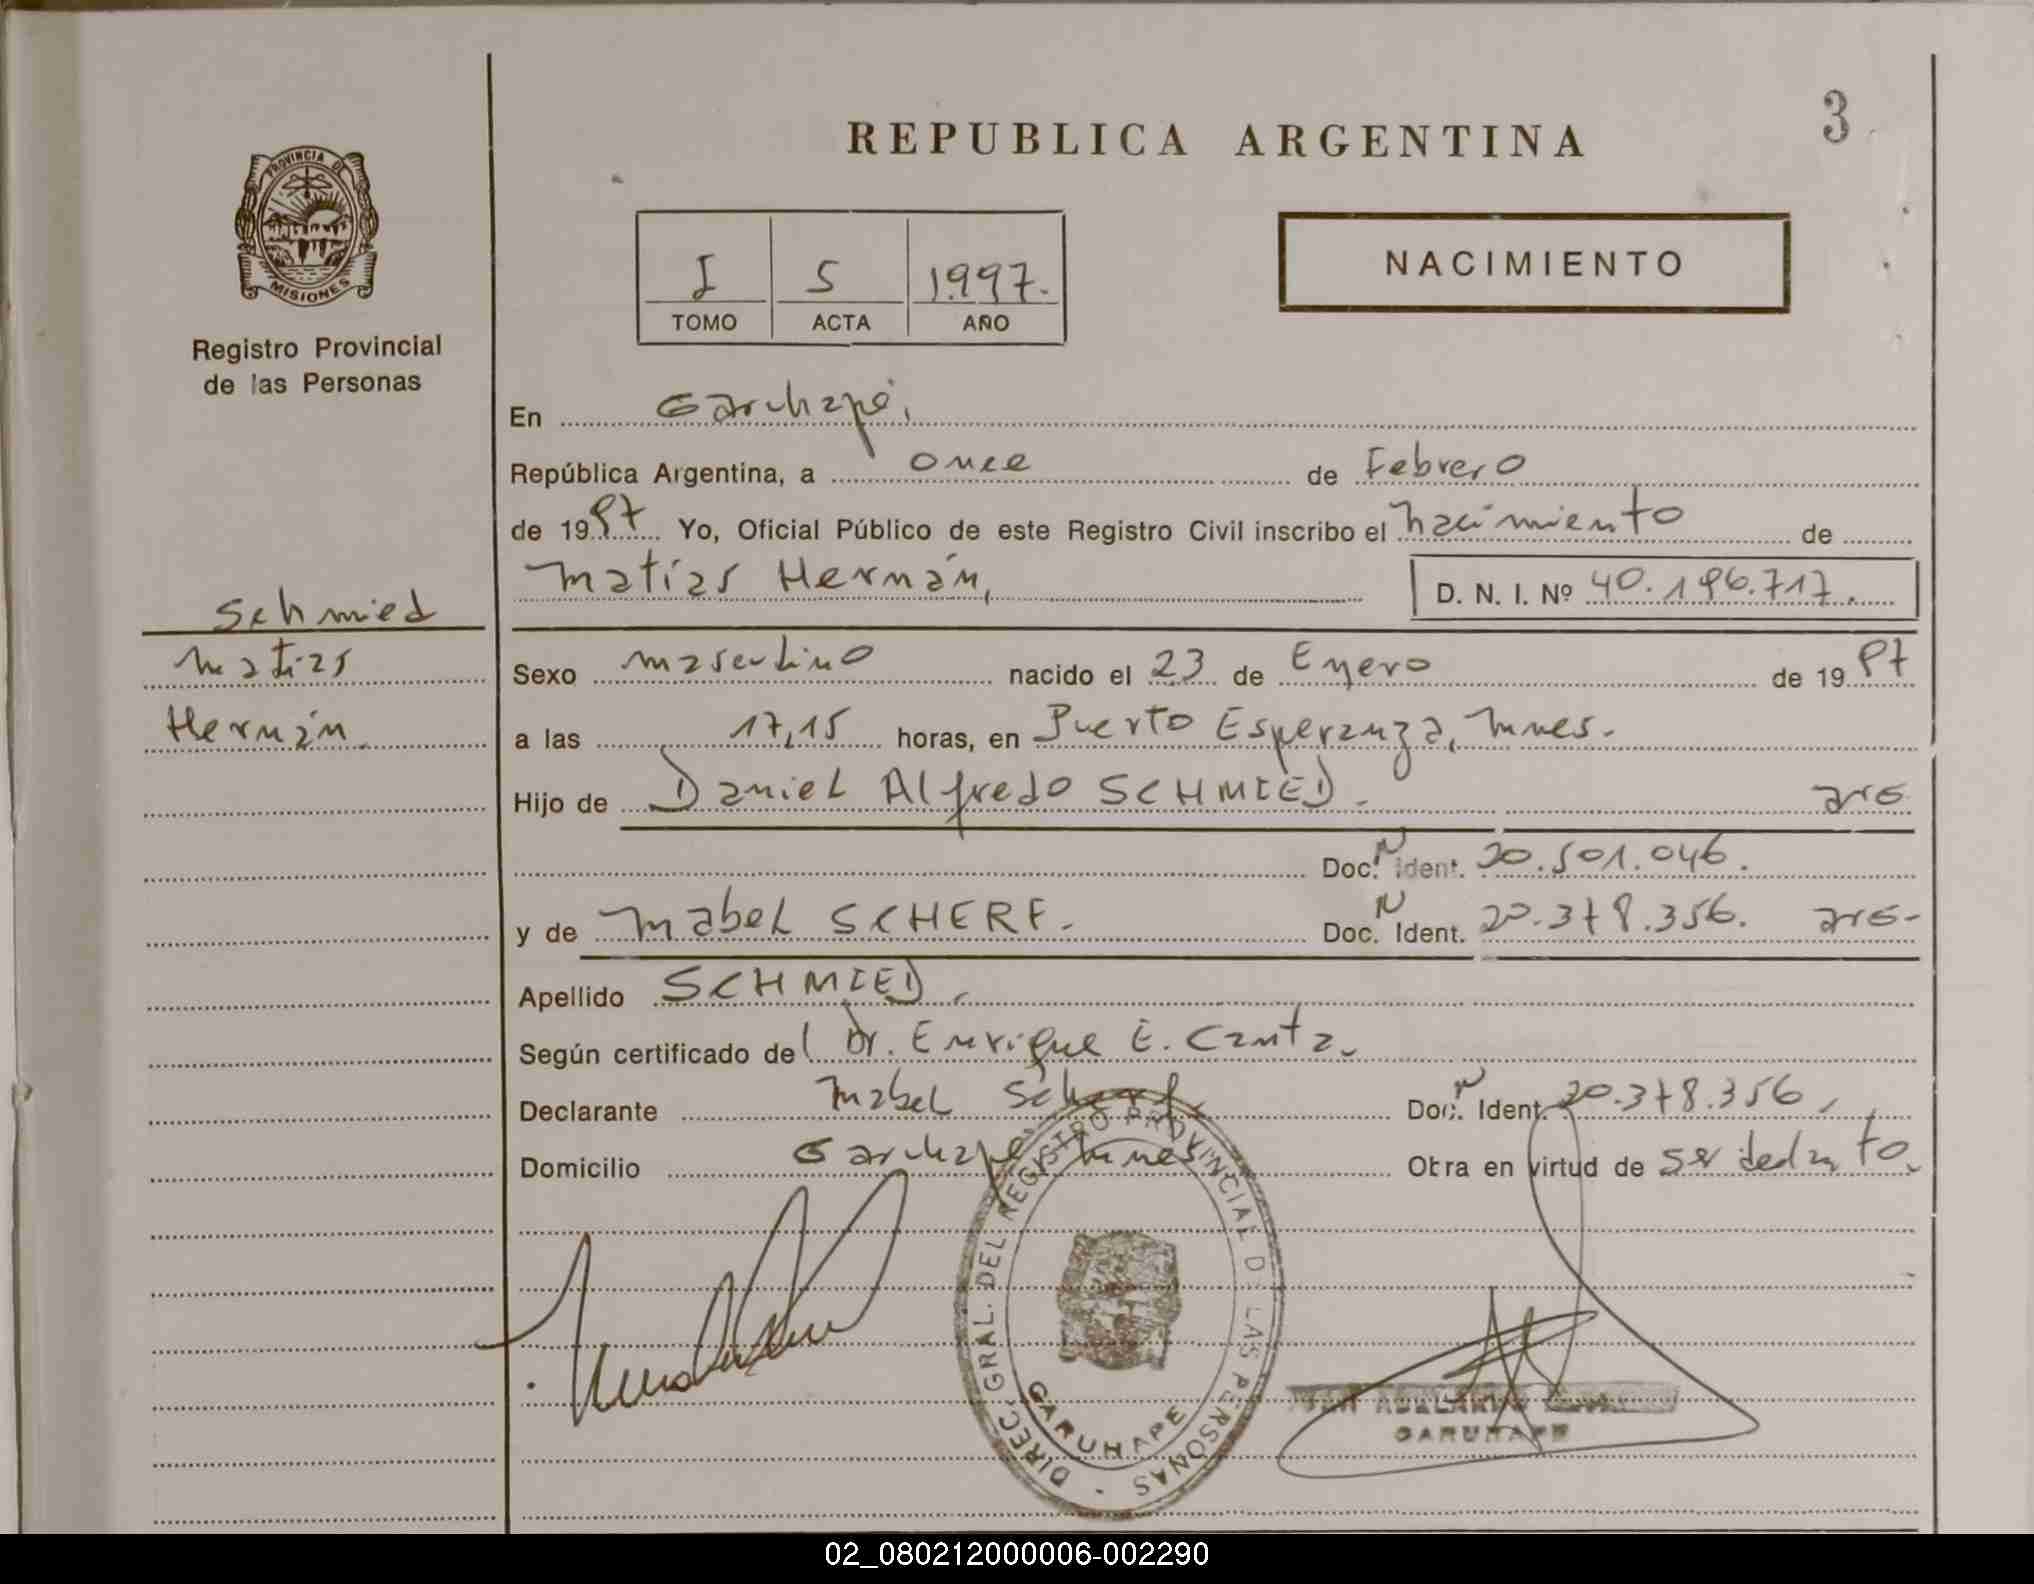 3
REPUBLICA ARGENTINA
PROVINCIA DE MISIONES
Registro Provincial
de las Personas
I 5 1.997.
TOMO ACTA AÑO
NACIMIENTO
En Garuhapé,
República Argentina, a once de Febrero
de 1997. Yo, Oficial Público de este Registro Civil inscribo el nacimiento de
Matías Hernán, D. N. I. Nº 40.196.717.
Schmied
Matías
Hernán.
Sexo masculino nacido el 23 de Enero de 1997
a las 17,15 horas, en Puerto Esperanza, Mnes.
Hijo de Daniel Alfredo SCHMIED. arg
Doc. N Ident. 20.501.046.
y de Mabel SCHERF. Doc. N Ident. 20.378.356. arg-
Apellido SCHMIED.
Según certificado del Dr. Enrique E. Canta.
Declarante Mabel Scherf, Doc. N Ident. 20.378.356,
Domicilio Garuhapé, Mnes Otra en virtud de ser
DIREC. GRAL. DEL REGISTRO PROVINCIAL DE LAS PERSONAS -
GARUHAPE
GARUHAPE
02_080212000006-002290